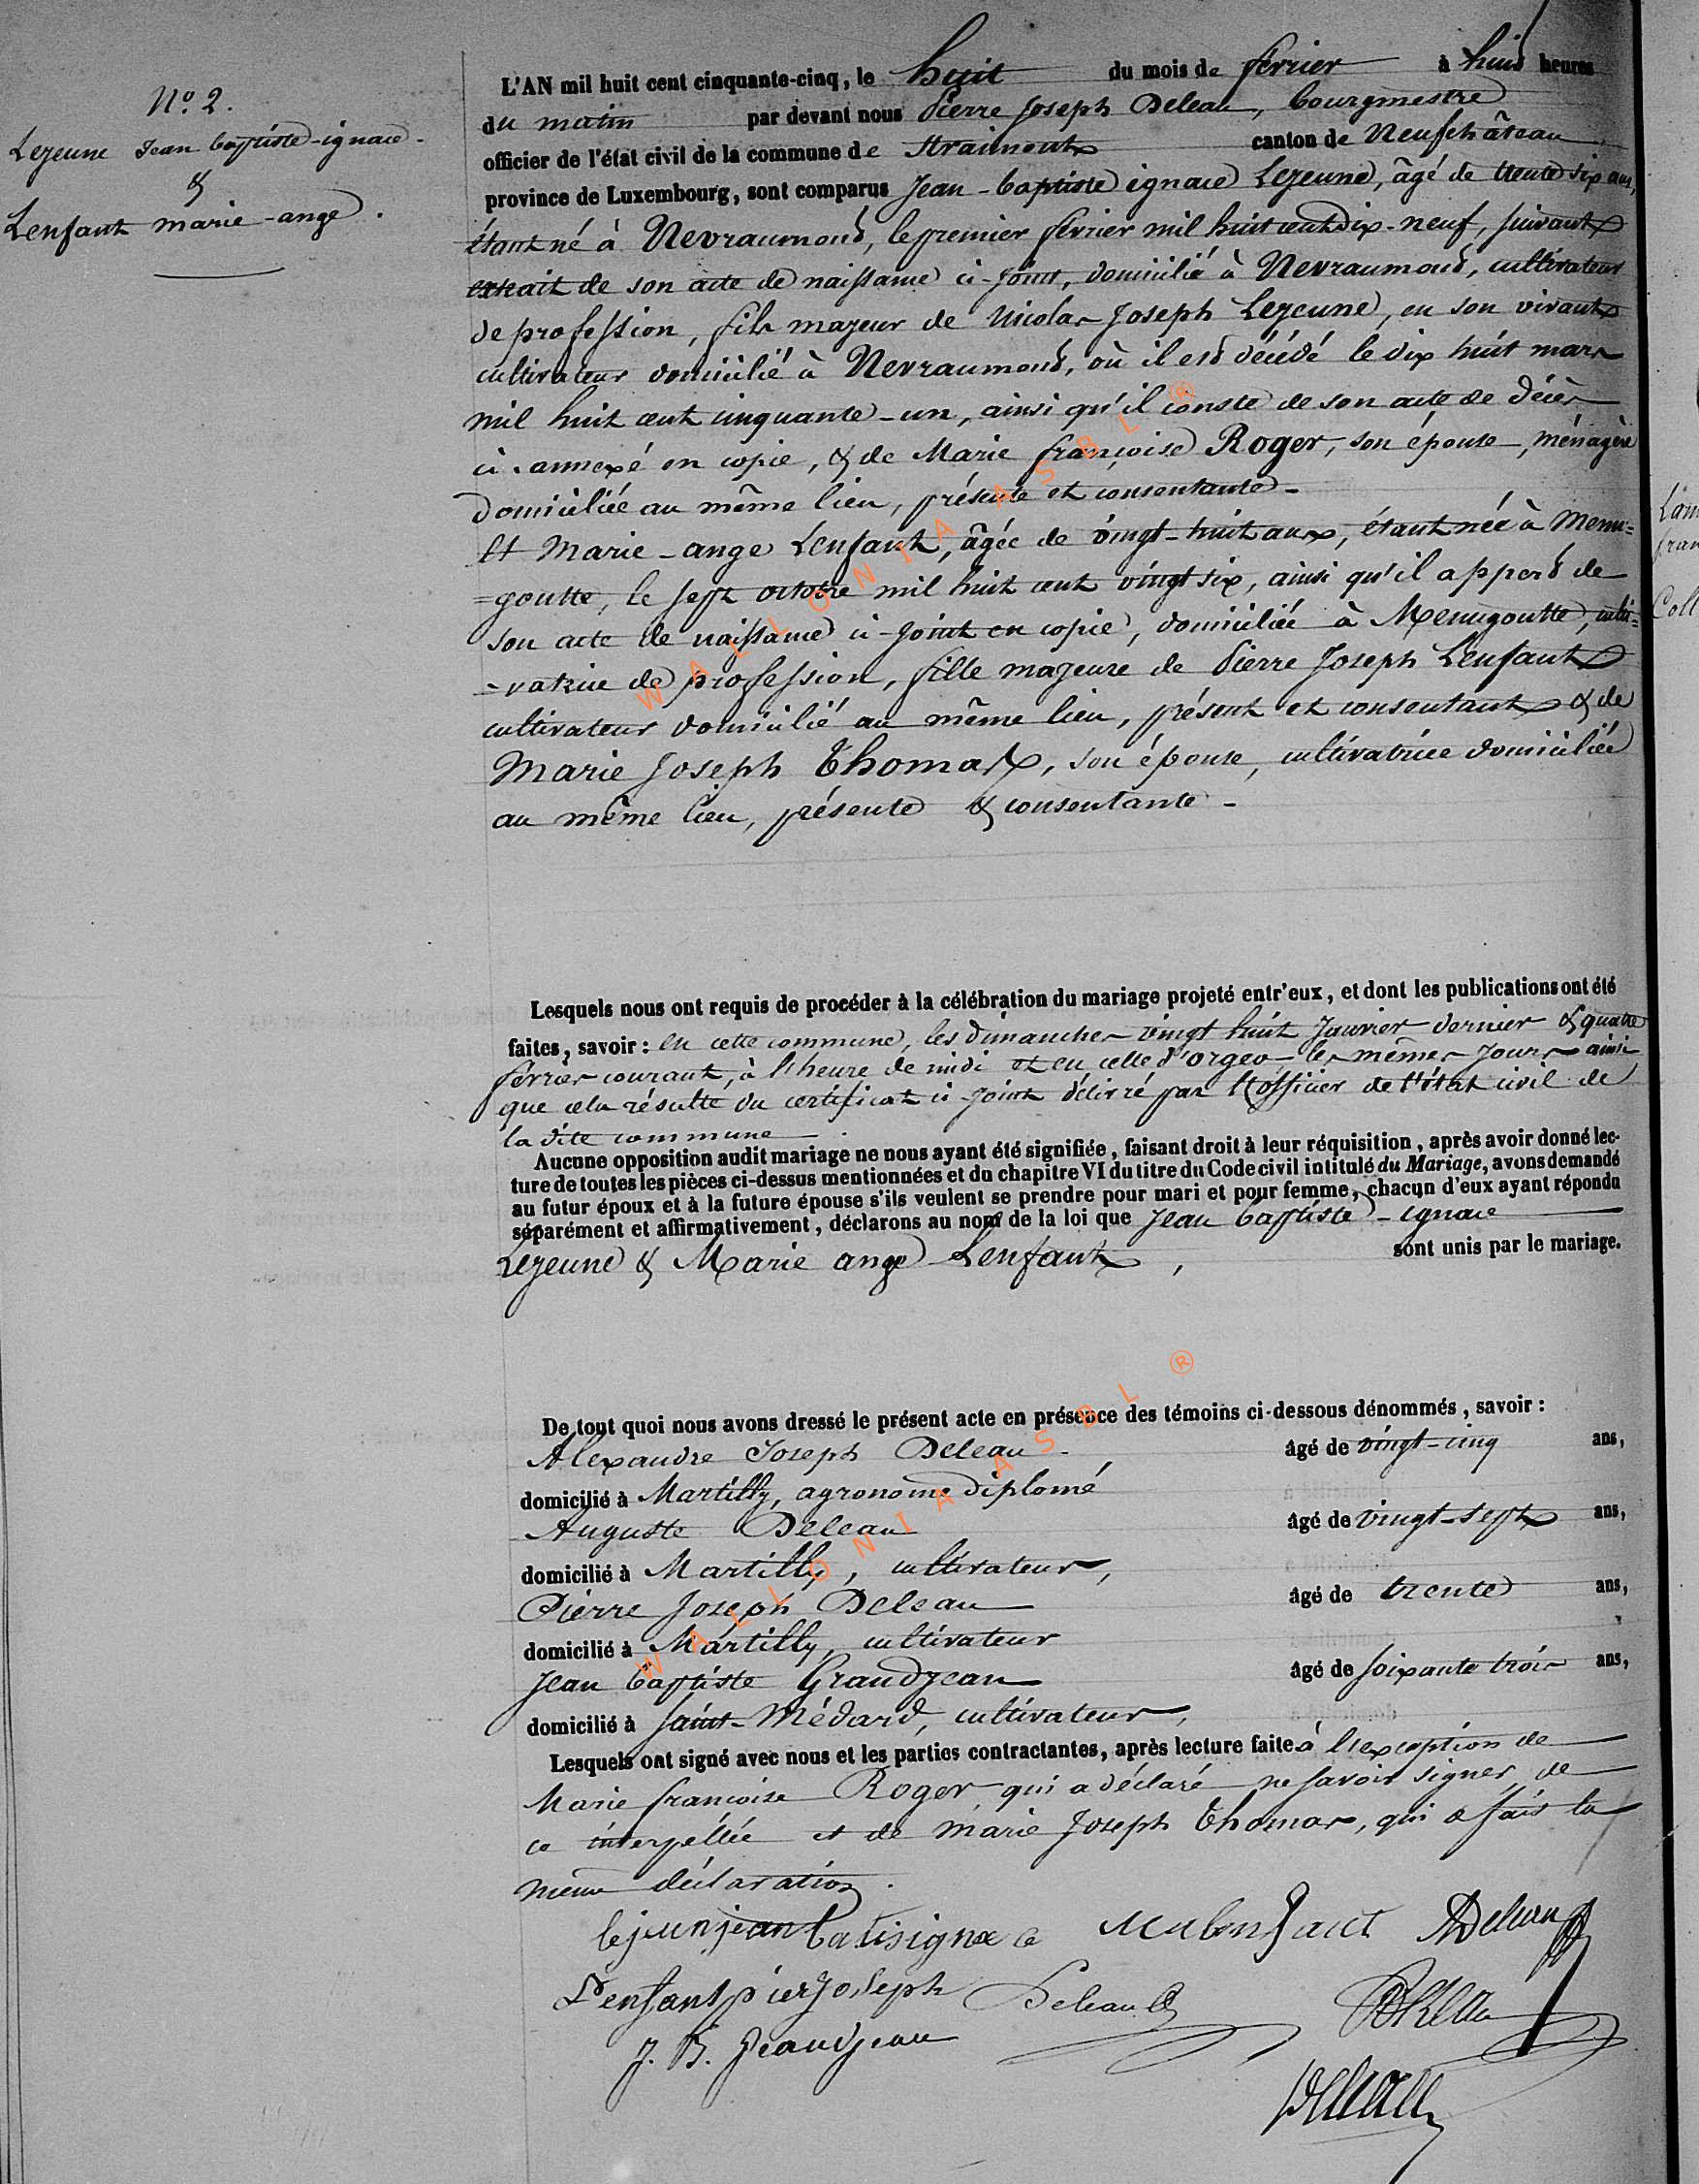 N.o 2.
Lejeune Jean baptiste-ignace.
&
Lenfant marie-ange.
L'AN mil huit cent cinquante-cinq, le huit du mois de février à huit heures
du matin par devant nous Pierre Joseph Deleau, bourgmestre
officier de l'état civil de la commune de Straimont canton de Neufchâteau
province de Luxembourg, sont comparus Jean-baptiste ignace Lejeune, âgé de trente six ans,
étant né à Nevraumont, le premier février mil huit cent dix-neuf, suivant
extrait de son acte de naissance ci-joint, domicilié à Nevraumont, cultivateur
de profession, fils majeur de Nicolas Joseph Lejeune, en son vivant
cultivateur domicilié à Nevraumont, où il est décédé le dix huit mars
mil huit cent cinquante-un, ainsi qu'il conste de son acte de décès
ci-annexé en copie, & de Marie françoise Roger, son épouse, ménagère
domiciliée au même lieu, présente et consentante-
Et Marie-ange Lenfant, âgée de vingt-huit ans, étant née à Menu=
=goutte, le sept octobre mil huit cent vingt six, ainsi qu'il appert de
son acte de naissance ci-joint en copie, domiciliée à Menugoutte, culti=
-vatrice de profession, fille majeure de Pierre Joseph Lenfant
cultivateur domicilié au même lieu, présent et consentant & de
Marie Joseph Thomas, son épouse, cultivatrice domiciliée
au même lieu, présente & consentante-
Lesquels nous ont requis de procéder à la célébration du mariage projeté entr'eux, et dont les publications ont été
faites, savoir: en cette commune, les dimanches vingt huit Janvier dernier & quatre
février courant, à l'heure de midi et en celle d'orgeo les mêmes jours ainsi
que cela résulte du certificat ci-joint délivré par l'officier de l'état civil de
la dite commune.
Aucune opposition audit mariage ne nous ayant été signifiée, faisant droit à leur réquisition, après avoir donné lec-
ture de toutes les pièces ci-dessus mentionnées et du chapitre VI du titre du Code civil intitulé du Mariage, avons demandé
au futur époux et à la future épouse s'ils veulent se prendre pour mari et pour femme, chacun d'eux ayant répondu
séparément et affirmativement, déclarons au nom de la loi que Jean baptiste-ignace
Lejeune & Marie ange Lenfant, sont unis par le mariage.
De tout quoi nous avons dressé le présent acte en présence des témoins ci-dessous dénommés, savoir:
Alexandre Joseph Deleau- âgé de vingt-cinq ans,
domicilié à Martilly, agronome diplomé
Auguste Deleau âgé de vingt-sept ans,
domicilié à Martilly, cultivateur,
Pierre Joseph Deleau âgé de trente ans,
domicilié à Martilly, cultivateur
Jean baptiste Grandjean âgé de soixante trois ans,
domicilié à Saint-Médard, cultivateur,
Lesquels ont signé avec nous et les parties contractantes, après lecture faite à l'exception de
Marie françoise Roger qui a déclaré ne savoir signer, de
ce interpellée et de marie Joseph Thomas, qui a fait la
même déclaration.
lejeun jean batisigna ce Malenfant ADeleau
Lenfant pier joseph Deleau
J. B. Grandjean
WALLONIA ASBL ®
WALLONIA ASBL ®